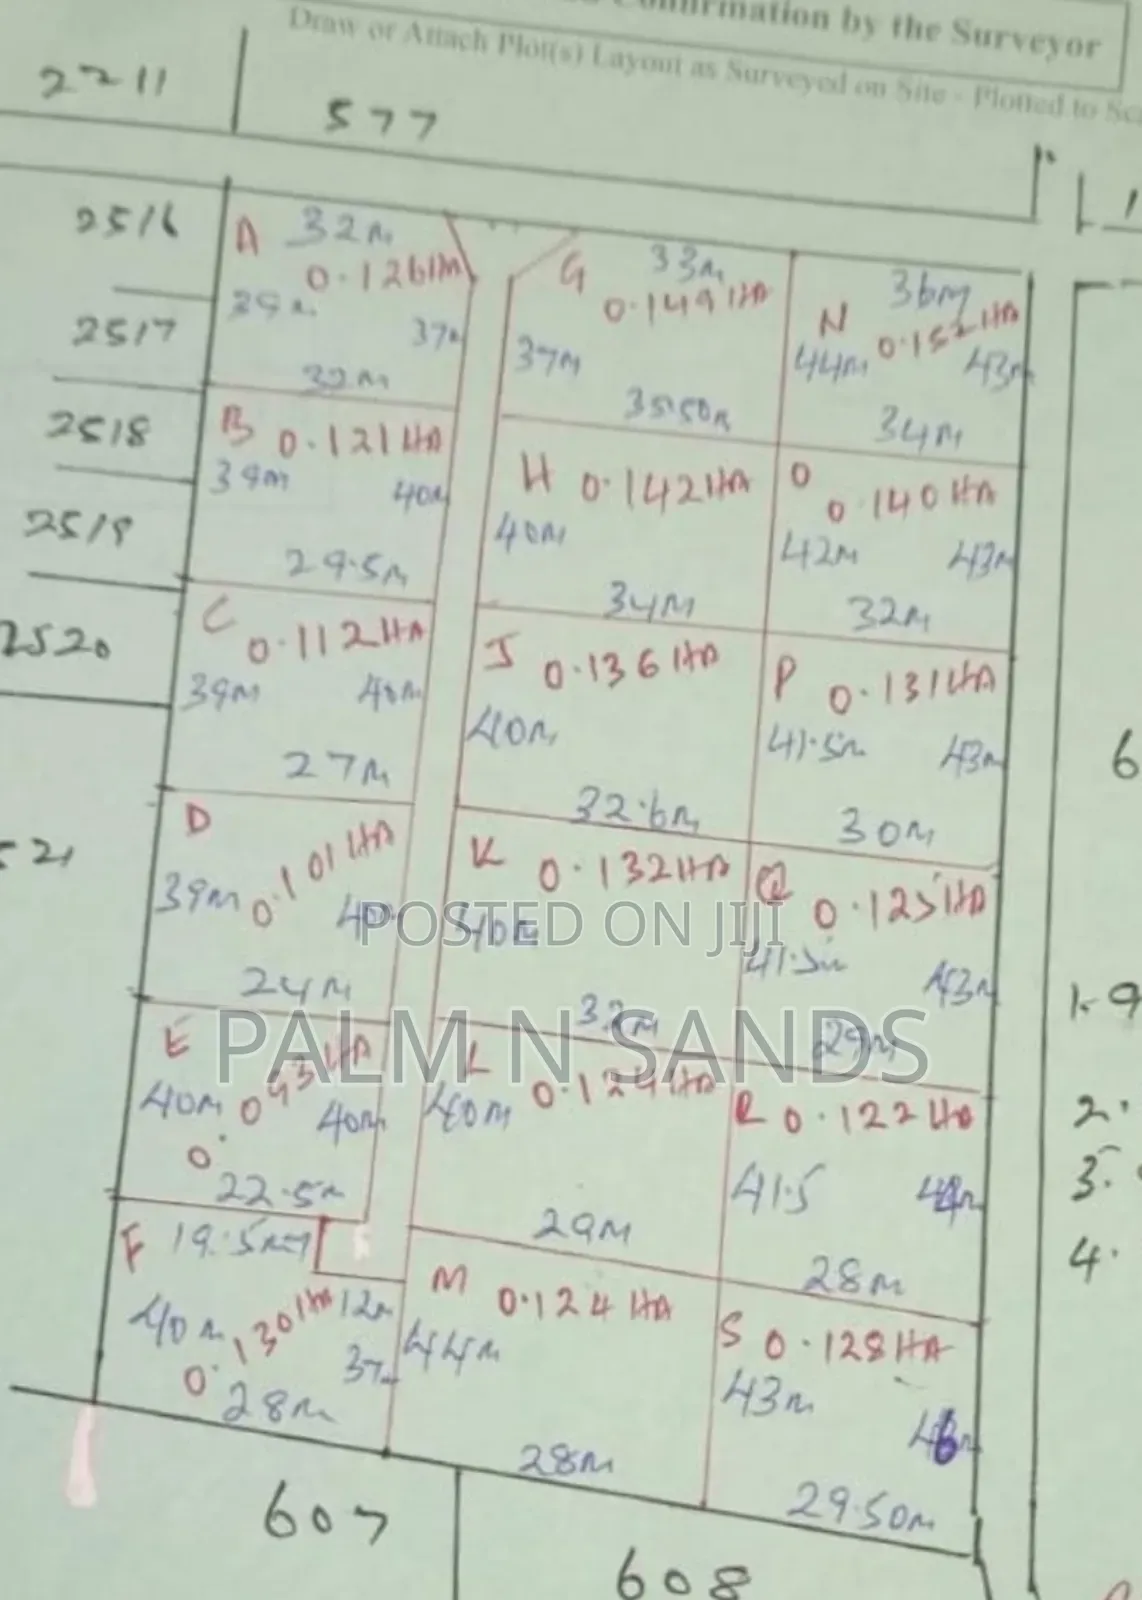 Confirmation by the Surveyor
Draw or Attach Plot(s) Layout as Surveyed on Site - Plotted to
2211
577
2516
2517
2518
2519
2520
521
A 32m
0.126HA
39m
37m
32m
B 0.121HA
39m
40m
29.5m
C 0.112HA
39m
40m
27m
D
0.101HA
39m
40m
24m
E
0.093HA
40m
40m
0.
22.5m
F 19.5m
0.130HA
40m
12m
37m
28m
G 33m
0.149HA
37m
35.50m
H 0.142HA
40m
34m
J 0.136HA
40m
32.6m
K 0.132HA
40m
L
40m
29m
M 0.124HA
44m
28m
N 36m
0.152HA
44m
43m
34m
O
0.140HA
42m
43m
32m
P 0.131HA
41.5m
43m
30m
Q 0.125HA
41.5m
43m
29m
R 0.122HA
41.5
28m
S 0.128HA
43m
29.50m
607
608
6
1.9
2.
3.
4.
POSTED ON JIJI
PALM N SANDS